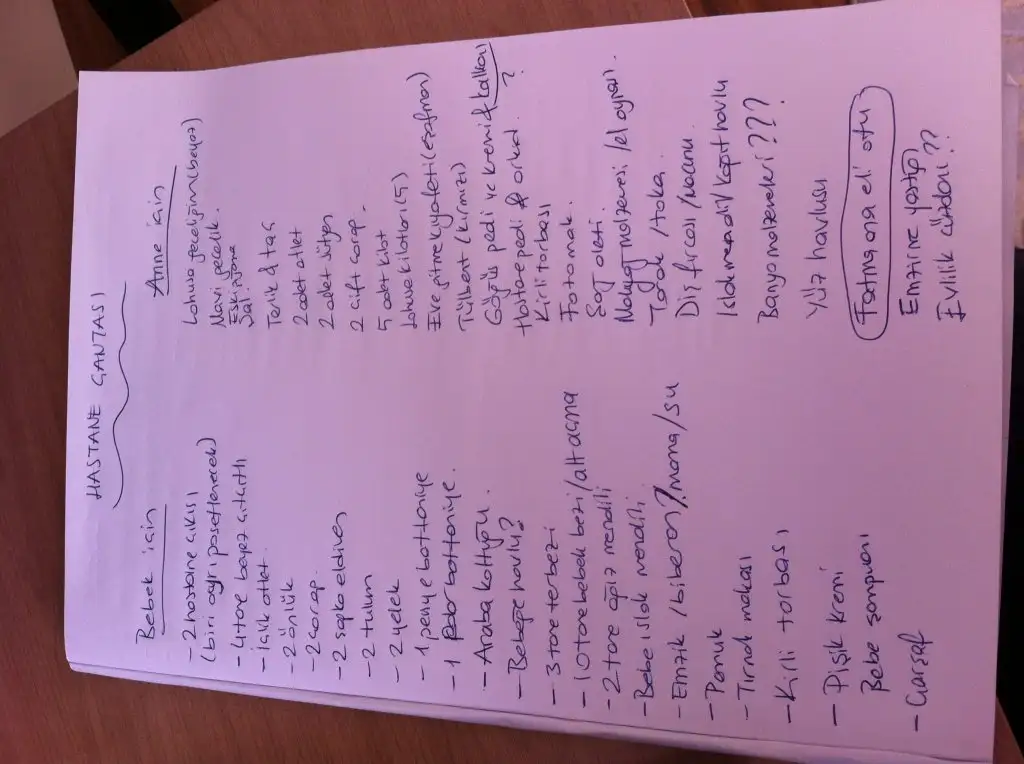 HASTANE ÇANTASI
Bebek için
- 2 hastane çıkışı
(biri ayrı poşetlenecek)
- 4 tane beyaz çıtçıtlı
- içlik atlet.
- 2 önlük
- 2 çorap.
- 2 şapka eldiven
- 2 tulum
- 2 yelek
- 1 penye battaniye
- 1 polar battaniye.
- Araba koltuğu.
- Bebeğe havlu?
- 3 tane ter bezi
- 10 tane bebek bezi/alt açma
- 2 tane ağız mendili
- Bebe ıslak mendili
- Emzik /biberon?/mama/su
- Pamuk
- Tırnak makası
- Kirli torbası
- Pişik Kremi
Bebe şampuanı
- Çarşaf
Anne için
Lohusa geceliğim (beyaz)
Mavi gecelik.
Eski pijama
Şal.
Terlik & taç
2 adet atlet
2 adet sütyen
2 çift çorap.
5 adet kilot
Lohusa kilotları (5)
Eve gitme kıyafeti (eşofman)
Tülbent (kırmızı)
Göğüs pedi ve kremi & kalkanı
Hatare pedi & orkid. ?
Kirli torbası
Fotomak.
Sağ aleti.
Makyaj malzemesi /el aynası.
Tarak /toka
Diş fırçası /macunu
Islak mendil/kağıt havlu
Banyo malzemeleri ???
Yüz havlusu
Fatma ana eli otu
Emzirme yastığı
Evlilik cüzdanı ??